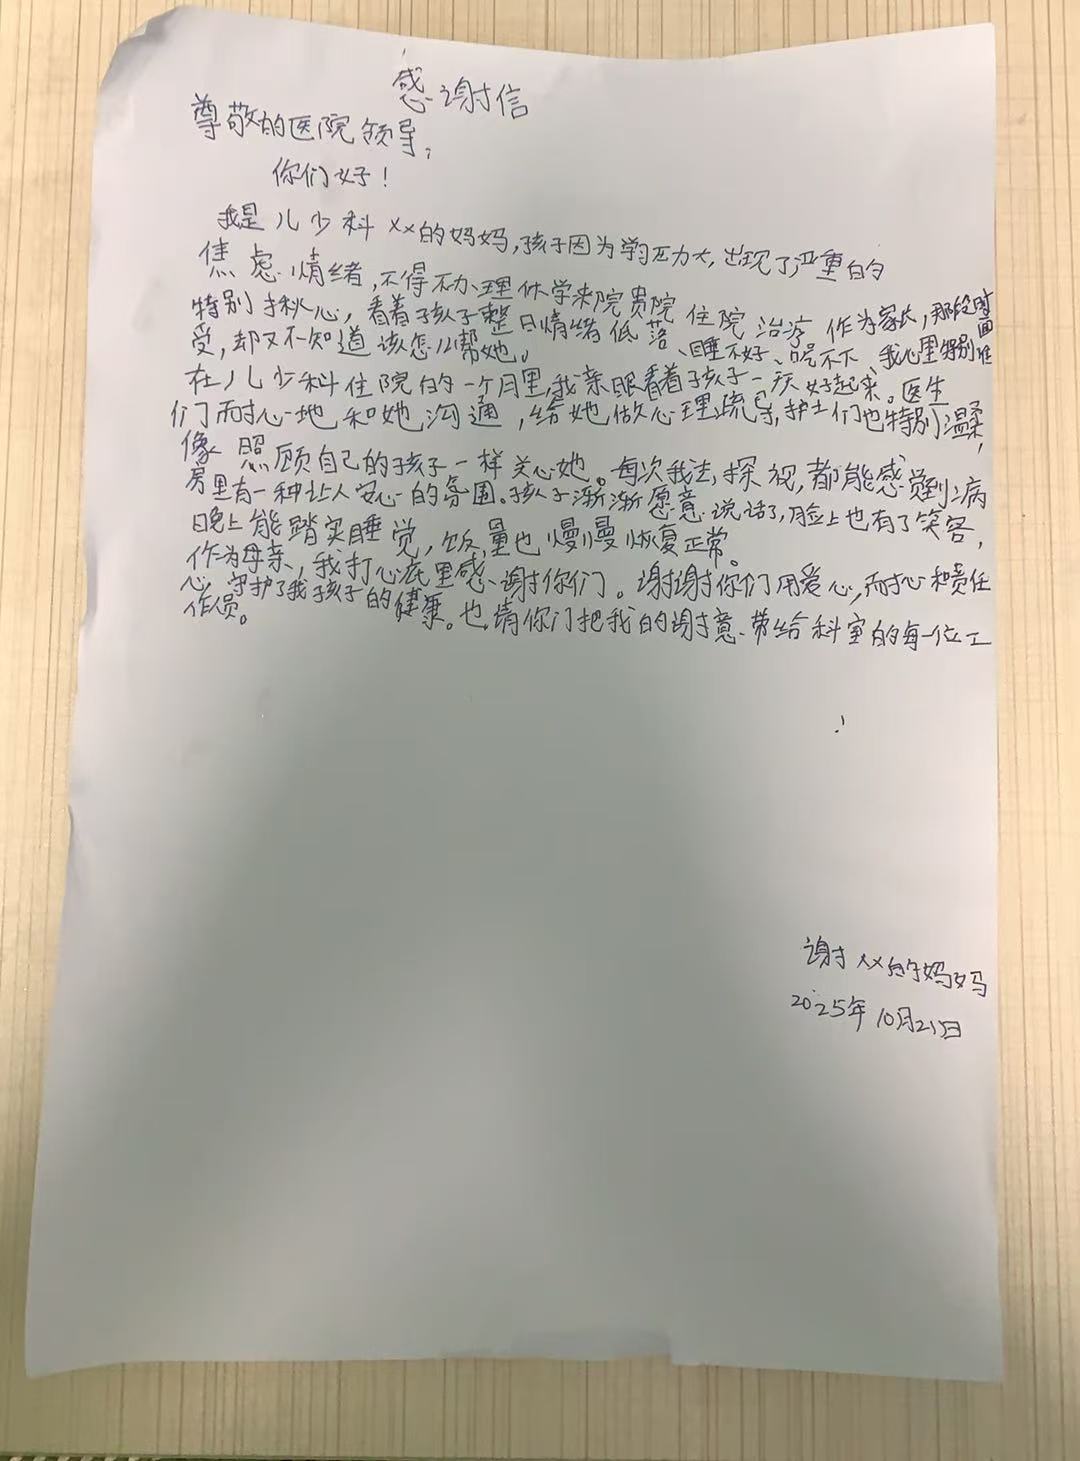 感谢信
尊敬的医院领导,
你们好!
我是儿少科XX的妈妈,孩子因为学习压力大,出现了严重的
焦虑情绪,不得不办理休学来院贵院住院治疗 作为家长,那段时间
特别揪心,看着孩子整日情绪低落、睡不好、吃不下、我心里特别难
受,却又不知道该怎么帮她。
在儿少科住院的一个月里,我亲眼看着孩子一天天好起来。医生
们耐心地和她沟通,给她做心理疏导,护士们也特别温柔,
像照顾自己的孩子一样关心她。每次我去探视,都能感觉到病
房里有一种让人安心的氛围。孩子渐渐愿意说话了,脸上也有了笑容,
晚上能踏实睡觉,饭量也慢慢恢复正常。
作为母亲,我打心底里感谢你们。谢谢你们用爱心,耐心和责任
心守护了我孩子的健康。也请你们把我的谢意带给科室的每一位工
作员。
谢XX的妈妈
2025年10月21日